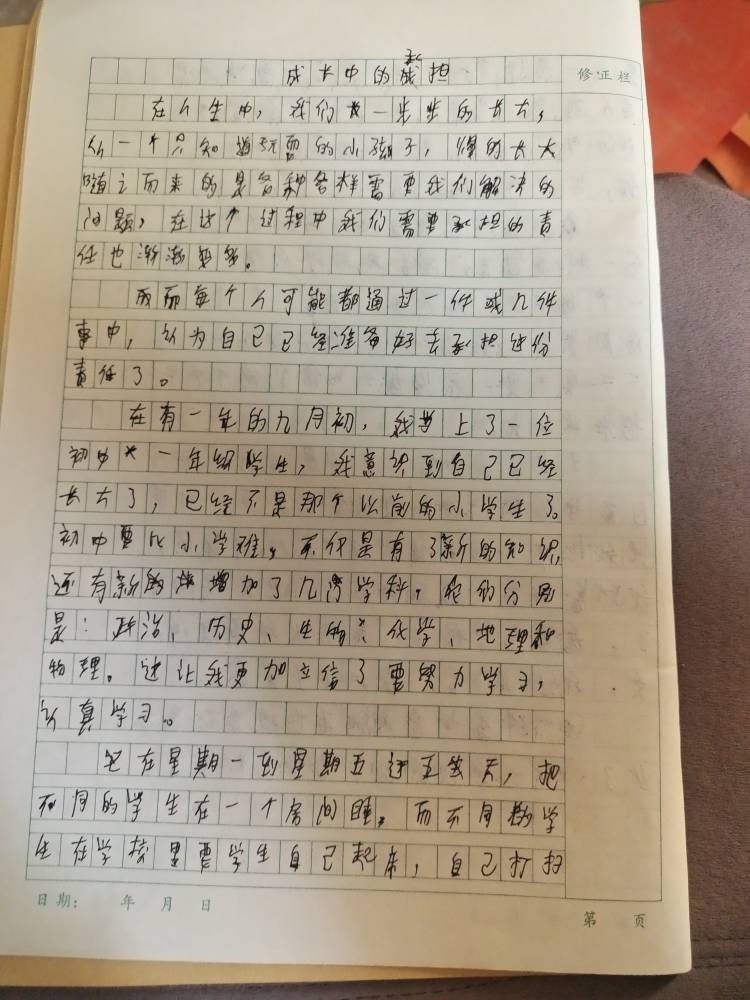 成长中的承担
修正栏
在人生中，我们一步步的长大，
从一个只知道玩耍的小孩子，慢的长大
随之而来的是各种各样需要我们解决的
问题，在这个过程中我们需要承担的责
任也渐渐变多。
而每个人可能都通过一件或几件
事中，认为自己已经准备好去承担这份
责任了。
在有一年的九月初，我当上了一位
初中一年级学生，我意识到自己已经
长大了，已经不是那个以前的小学生了。
初中要比小学难。不仅是有了新的知识，
还有新的增加了几门学科，它们分别
是：政治、历史、生物、化学、地理和
物理。这让我更加立信了要努力学习，
认真学习。
在星期一到星期五这五天，把
不同的学生在一个房间睡。而不同
学生在学校里要学生自己起来，自己打扫
日期： 年 月 日
第 页